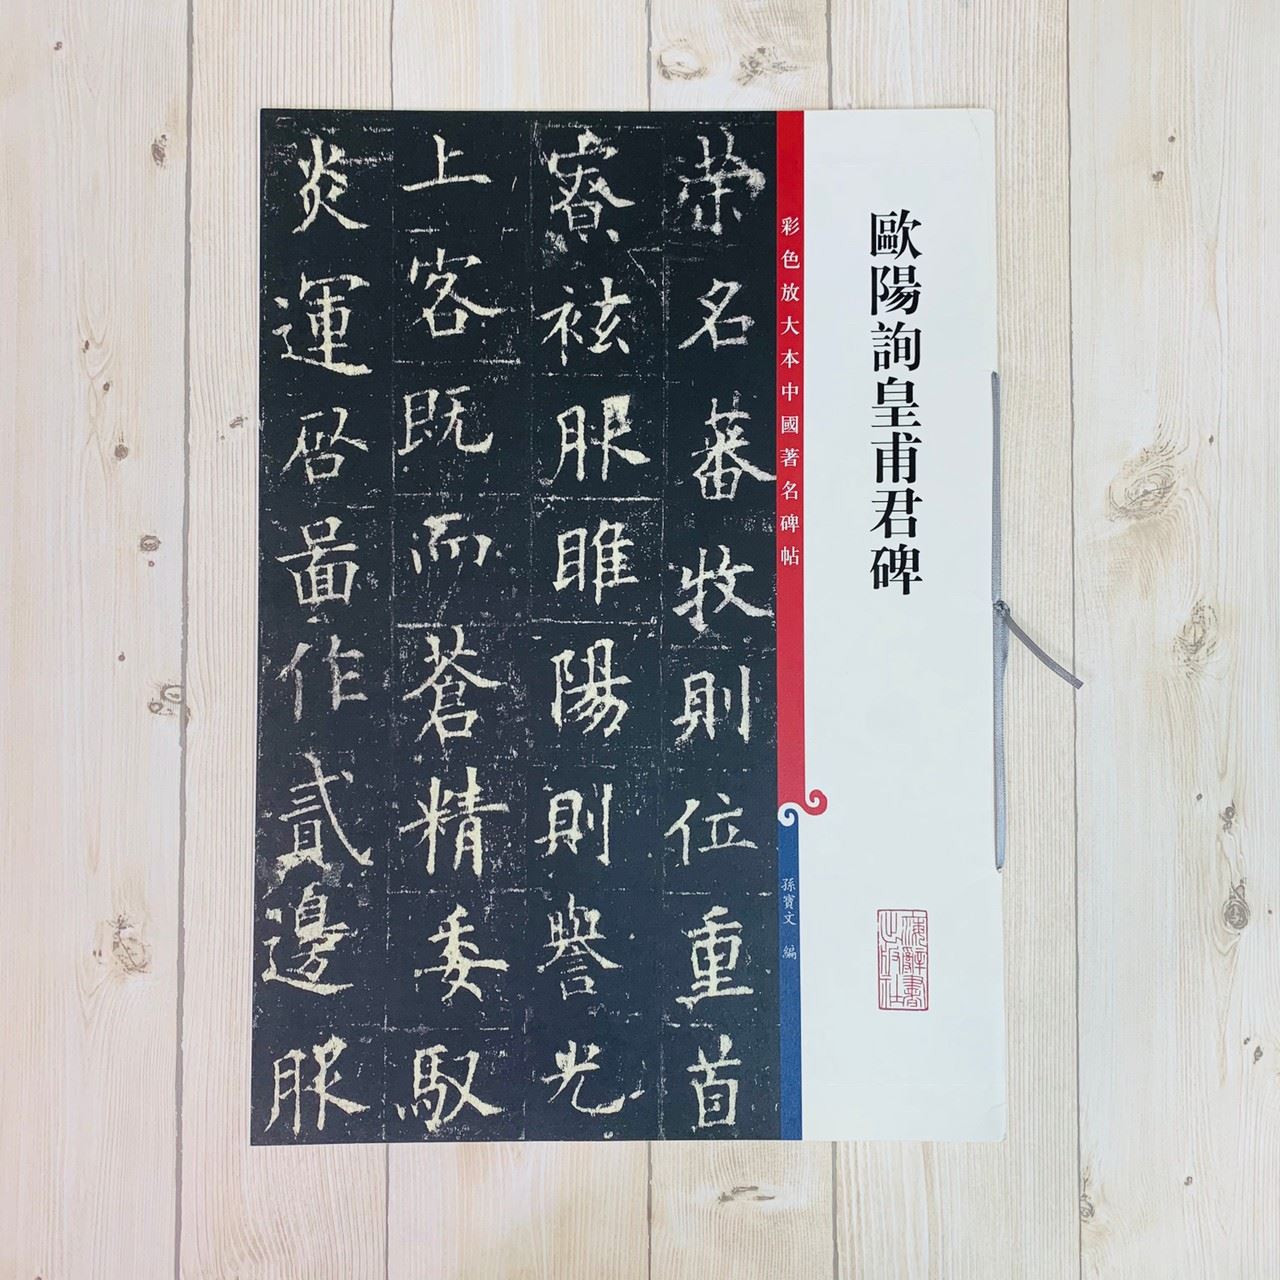 歐陽詢皇甫君碑
海辭書
出版社
彩色放大本中國著名碑帖
孫寶文 編
荣名蕃牧則位重首
寮袨服睢陽則譽光
上客既而蒼精委馭
炎運啓啚作貳邊服